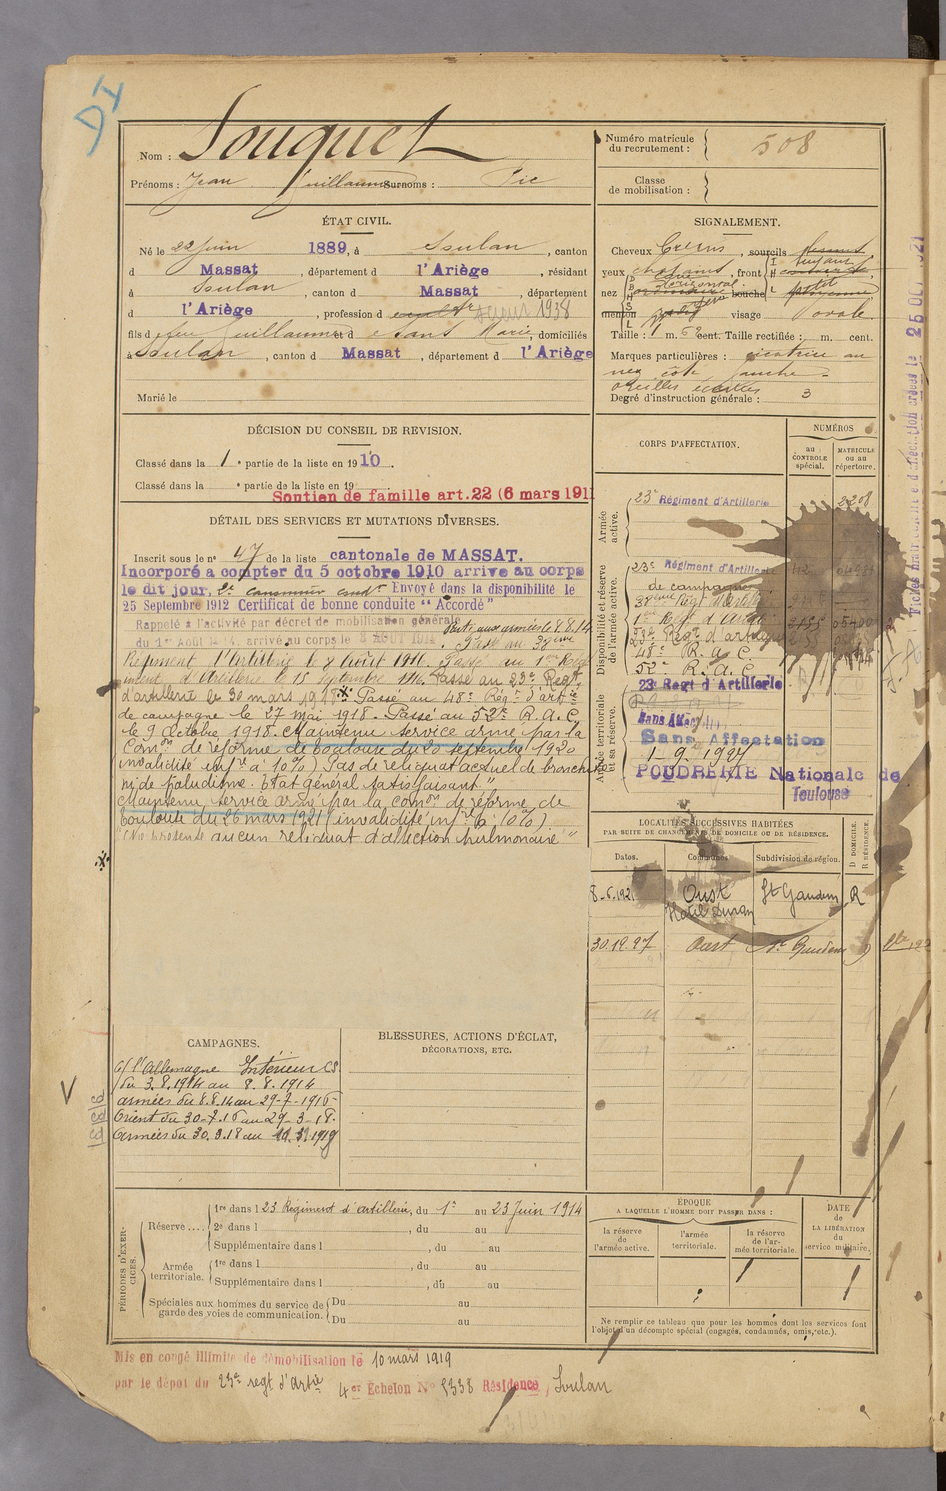 DI
Nom : Souquet
Prénoms : Jean Guillaume Surnoms : Pic
Numéro matricule du recrutement : 508
Classe de mobilisation :
ÉTAT CIVIL.
Né le 22 juin 1889, à Soulan, canton
d Massat, département d l'Ariège, résidant
à Soulan, canton d Massat, département
d l'Ariège, profession d 1938
fils d feu Guillaume et d Sans Marie, domiciliés
à Soulan, canton d Massat, département d l'Ariège
Marié le
SIGNALEMENT.
Cheveux sourcils
yeux châtains, front
nez bouche
menton visage ovale
Taille : 1 m. 62 cent. Taille rectifiée : m. cent.
Marques particulières : cicatrice au
nez côté gauche -
oreilles écartées
Degré d'instruction générale : 3
DÉCISION DU CONSEIL DE REVISION.
Classé dans la 1e partie de la liste en 1910.
Classé dans la e partie de la liste en 19
Soutien de famille art.22 (6 mars 1911
DÉTAIL DES SERVICES ET MUTATIONS DIVERSES.
Inscrit sous le n° 47 de la liste cantonale de MASSAT.
Incorporé a compter du 5 octobre 1910 arrive au corps
le dit jour, 2e canonnier condr Envoyé dans la disponibilité le
25 Septembre 1912 Certificat de bonne conduite "Accordé"
Rappelé à l'activité par décret de mobilisation générale
du 1er Août 14. arrivé au corps le 3 AOUT 1914
Parti aux armées le 8.8.14
. Passé au 38ème
Régiment d'Artillerie le 8 Août 1916. Passé au 1er Régi
ment d'Artillerie le 15 septembre 1916. Passé au 23e Regt
d'artillerie le 30 mars 1918. Passé au 48e Régt d'artie
de campagne le 27 mai 1918 - Passé au 52e R.A.C.
le 9 Octobre 1918. Maintenu service armé par la
Comon de réforme de Toulouse du 20 septembre 1920
invalidité infre à 10%) Pas de reliquat actuel de bronchite
ni de paludisme. État général satisfaisant "
Maintenu service armé par la comon de réforme de
Toulouse du 26 mars 1921 (invalidité infre à 10%)
"(Ne présente aucun reliquat d'affection pulmonaire "
CORPS D'AFFECTATION.
NUMÉROS
au CONTROLE spécial.
MATRICULE ou au répertoire.
Armée active.
23e Régiment d'Artillerie 2208
Disponibilité et réserve de l'armée active.
23e Régiment d'Artillerie
de campagne
38ème Regt d'Artillerie
1er Regt d'Artie
23e Regt d'artie
48e R.A.C.
52e R.A.C.
Armée territoriale et sa réserve.
23e Regt d'Artillerie
Sans Affectation
1-9-1927
POUDRERIE Nationale de
Toulouse
LOCALITÉS SUCCESSIVES HABITÉES
PAR SUITE DE CHANGEMENTS DE DOMICILE OU DE RÉSIDENCE.
Dates. Communes. Subdivision de région. D DOMICILE. R RÉSIDENCE.
8-6.1921 Oust St Gaudens R
30.12.27 Oust St Gaudens
CAMPAGNES.
c/ l'Allemagne Intérieur CS
du 3.8.1914 au 8.8.1914
armées du 8.8.14 au 29-7-1916
Orient du 30-7.16 au 29-3-18.
Armées du 30.3.18 au
BLESSURES, ACTIONS D'ÉCLAT,
DÉCORATIONS, ETC.
PÉRIODES D'EXERCICES.
Réserve....
1re dans l 23 Régiment d'artillerie, du 1er au 23 Juin 1914
2e dans l , du au
Supplémentaire dans l , du au
Armée territoriale.
1re dans l , du au
Supplémentaire dans l , du au
Spéciales aux hommes du service de garde des voies de communication.
Du au
Du au
ÉPOQUE
A LAQUELLE L'HOMME DOIT PASSER DANS :
la réserve de l'armée active.
l'armée territoriale.
la réserve de l'armée territoriale.
DATE de LA LIBÉRATION du service militaire.
Ne remplir ce tableau que pour les hommes dont les services font
l'objet d'un décompte spécial (engagés, condamnés, omis, etc.).
Mis en congé illimité de démobilisation le 10 mars 1919
par le dépot du 23e regt d'Artie 4er Echelon N° 5338 Résidence, Soulan